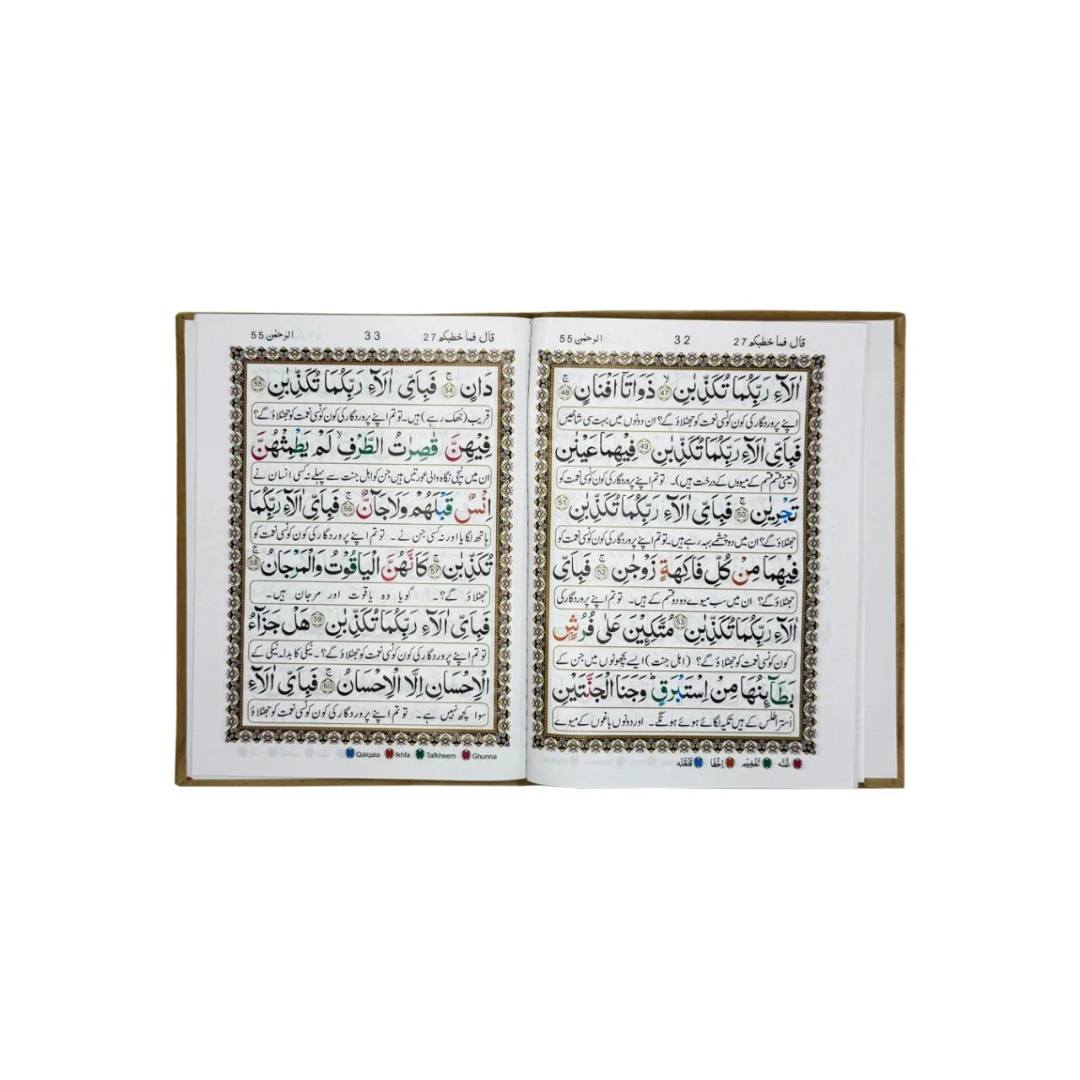 قال فما خطبكم 27
32
الرحمٰن 55
اٰلَآءِ رَبِّكُمَا تُكَذِّبٰنِ ﴿47﴾ ذَوَاتَآ اَفْنَانٍ ﴿48﴾
اپنے پروردگار کی کون کونسی نعمت کو جھٹلاؤ گے؟ ان دونوں میں بہت سی شاخیں
فَبِاَيِّ اٰلَآءِ رَبِّكُمَا تُكَذِّبٰنِ ﴿49﴾ فِيْهِمَا عَيْنٰنِ
(یعنی قسم قسم کے میووں کے درخت ہیں)۔ تو تم اپنے پروردگار کی کون کونسی نعمت کو
تَجْرِيٰنِ ﴿50﴾ فَبِاَيِّ اٰلَآءِ رَبِّكُمَا تُكَذِّبٰنِ ﴿51﴾
جھٹلاؤ گے؟ ان میں دو چشمے بہہ رہے ہیں۔ تو تم اپنے پروردگار کی کون کونسی نعمت کو
فِيْهِمَا مِنْ كُلِّ فَاكِهَةٍ زَوْجٰنِ ﴿52﴾ فَبِاَيِّ
جھٹلاؤ گے؟ ان میں سب میوے دو دو قسم کے ہیں۔ تو تم اپنے پروردگار کی
اٰلَآءِ رَبِّكُمَا تُكَذِّبٰنِ ﴿53﴾ مُتَّكِـِٕيْنَ عَلٰى فُرُشٍ
کون کونسی نعمت کو جھٹلاؤ گے؟ (اہل جنت) ایسے بچھونوں میں جن کے
بَطَآىِٕنُهَا مِنْ اِسْتَبْرَقٍ ؕ وَجَنَا الْجَنَّتَيْنِ
استر اطلس کے ہیں تکیہ لگائے ہوئے ہونگے۔ اور دونوں باغوں کے میوے
غُنّه اِخْفَا تَفْخِيْم قَلْقَله
قال فما خطبكم 27
33
الرحمٰن 55
دَانٍ ﴿54﴾ فَبِاَيِّ اٰلَآءِ رَبِّكُمَا تُكَذِّبٰنِ ﴿55﴾
قریب (جھک رہے) ہیں۔ تو تم اپنے پروردگار کی کون کونسی نعمت کو جھٹلاؤ گے؟
فِيْهِنَّ قٰصِرٰتُ الطَّرْفِ ۙ لَمْ يَطْمِثْهُنَّ
ان میں نیچی نگاہ والی عورتیں ہیں جن کو اہل جنت سے پہلے نہ کسی انسان نے
اِنْسٌ قَبْلَهُمْ وَلَا جَآنٌّ ﴿56﴾ فَبِاَيِّ اٰلَآءِ رَبِّكُمَا
ہاتھ لگایا اور نہ کسی جن نے۔ تو تم اپنے پروردگار کی کون کونسی نعمت کو
تُكَذِّبٰنِ ﴿57﴾ كَاَنَّهُنَّ الْيَاقُوْتُ وَالْمَرْجَانُ ﴿58﴾
جھٹلاؤ گے؟۔ گویا وہ یاقوت اور مرجان ہیں۔
فَبِاَيِّ اٰلَآءِ رَبِّكُمَا تُكَذِّبٰنِ ﴿59﴾ هَلْ جَزَآءُ
تو تم اپنے پروردگار کی کون کونسی نعمت کو جھٹلاؤ گے؟۔ نیکی کا بدلہ نیکی کے
الْاِحْسَانِ اِلَّا الْاِحْسَانُ ﴿60﴾ فَبِاَيِّ اٰلَآءِ
سوا کچھ نہیں ہے۔ تو تم اپنے پروردگار کی کون کونسی نعمت کو جھٹلاؤ
Qalqala Ikhfa Tafkheem Ghunna